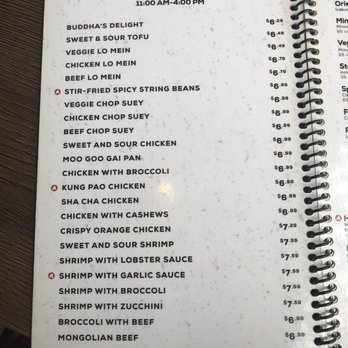 11:00 AM–4:00 PM
BUDDHA'S DELIGHT $6.29
SWEET & SOUR TOFU $6.49
VEGGIE LO MEIN $6.49
CHICKEN LO MEIN
BEEF LO MEIN
STIR-FRIED SPICY STRING BEANS
VEGGIE CHOP SUEY
CHICKEN CHOP SUEY
BEEF CHOP SUEY
SWEET AND SOUR CHICKEN $6.99
MOO GOO GAI PAN $6.99
CHICKEN WITH BROCCOLI $6.99
KUNG PAO CHICKEN $6.99
SHA CHA CHICKEN $6.99
CHICKEN WITH CASHEWS $6.99
CRISPY ORANGE CHICKEN
SWEET AND SOUR SHRIMP $7.59
SHRIMP WITH LOBSTER SAUCE $7.59
SHRIMP WITH GARLIC SAUCE $7.59
SHRIMP WITH BROCCOLI $7.59
SHRIMP WITH ZUCCHINI $7.59
BROCCOLI WITH BEEF $6.99
MONGOLIAN BEEF $6.99